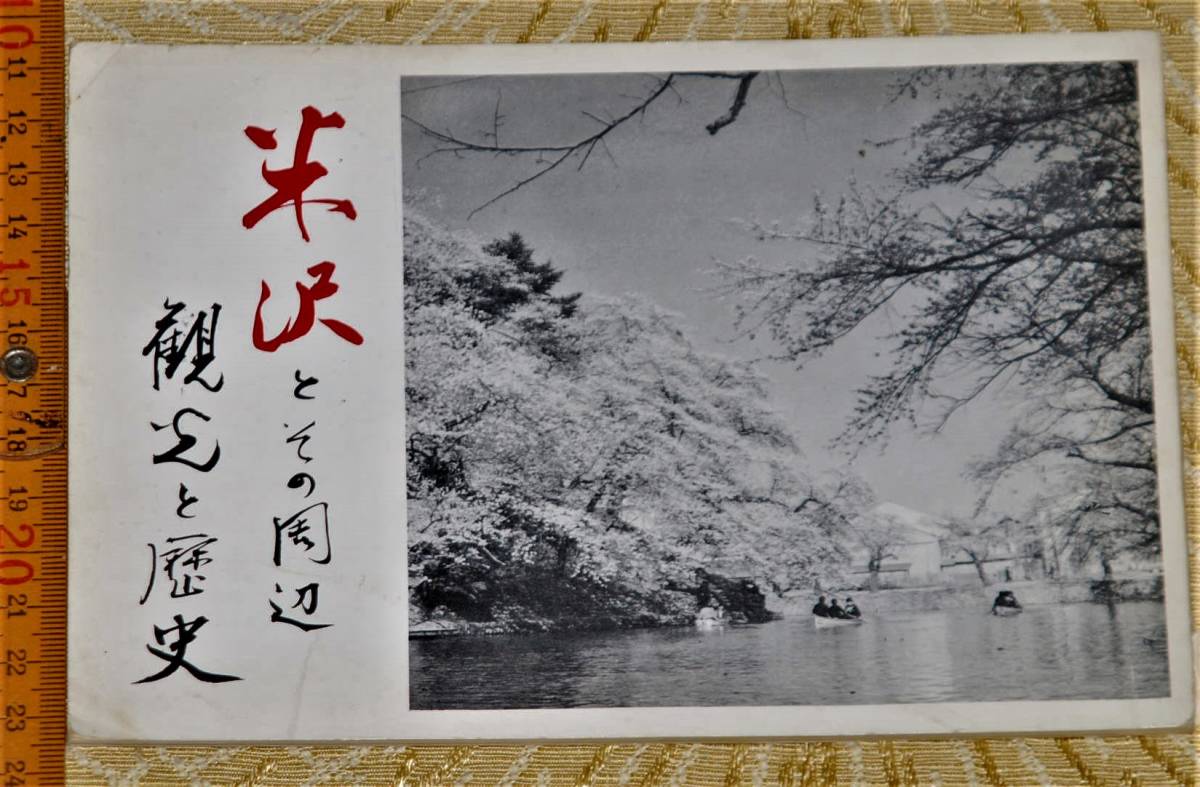 米沢とその周辺
観光と歴史
10
11
12
13
14
15
16
17
18
19
20
21
22
23
24